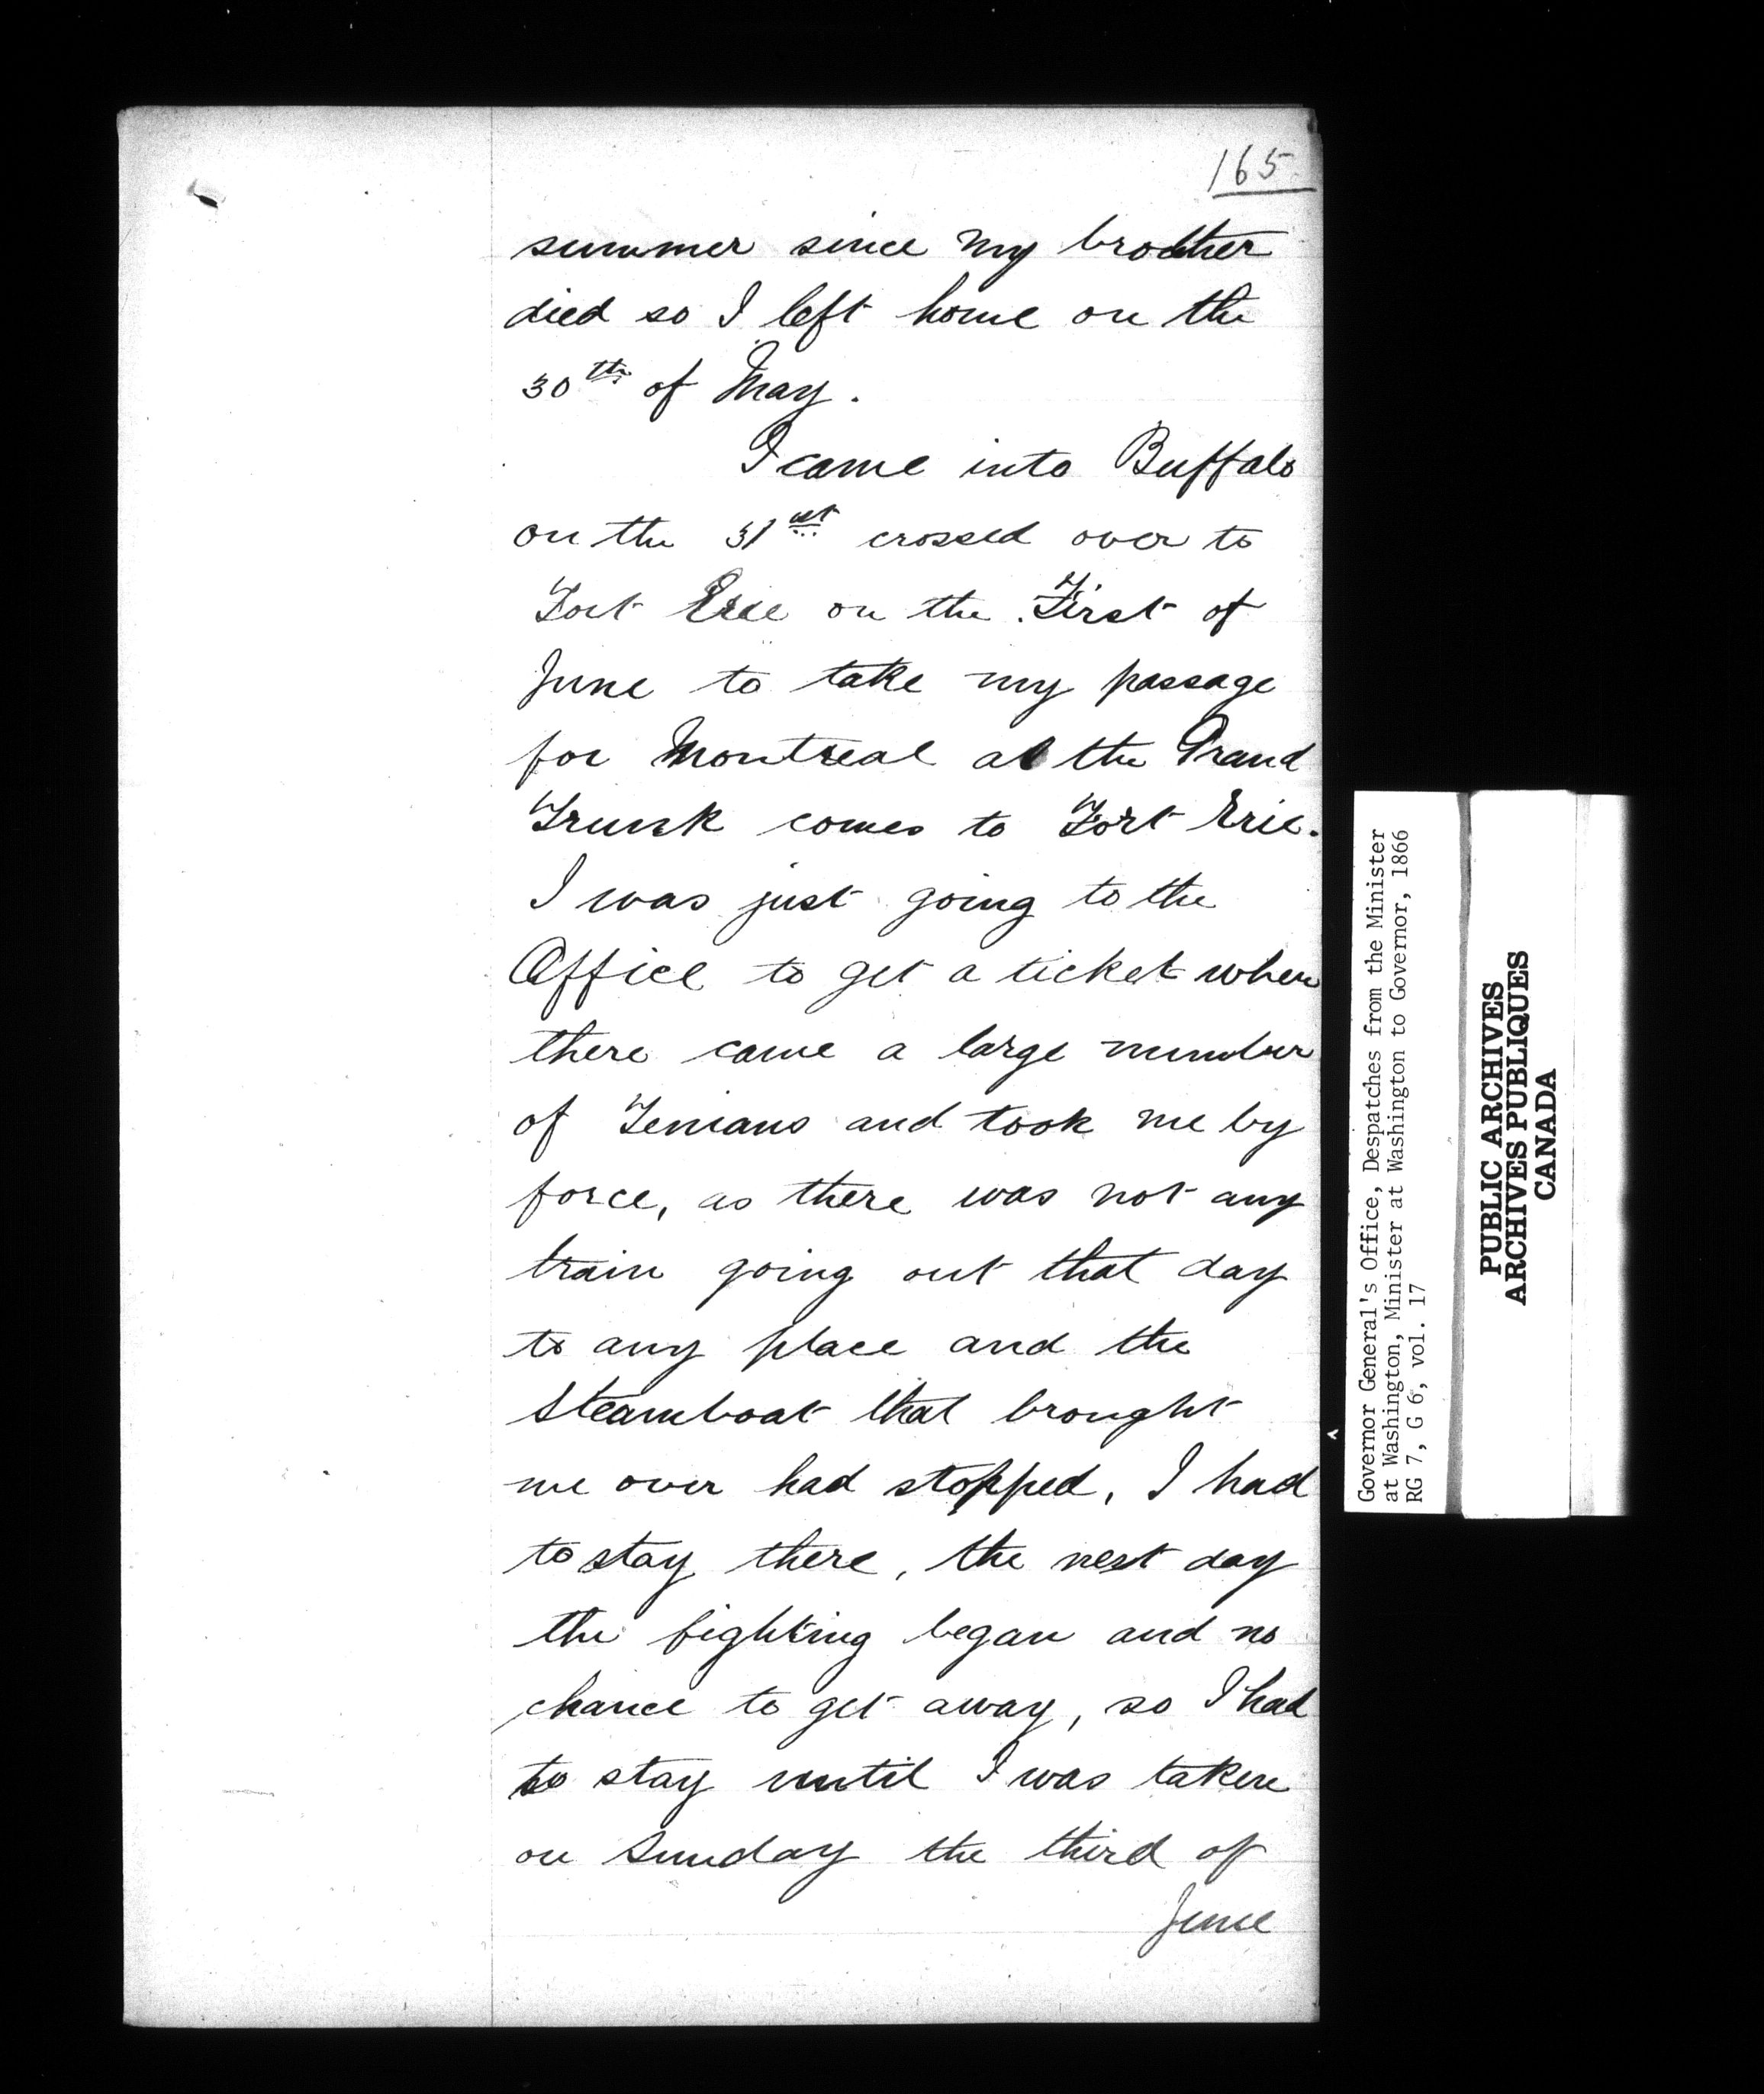 165
summer since my brother
died so I left home on the
30th of May.
I came into Buffalo
on the 31st crossed over to
Fort Erie on the First of
June to take my passage
for Montreal at the Grand
Trunk comes to Fort Erie.
I was just going to the
Office to get a ticket when
there came a large number
of Fenians and took me by
force, as there was not any
train going out that day
to any place and the
Steamboat that brought
me over had stopped, I had
to stay there, the next day
the fighting began and no
chance to get away, so I had
to stay until I was taken
on Sunday the third of
June
Governor General's Office, Despatches from the Minister
at Washington, Minister at Washington to Governor, 1866
RG 7, G 6, vol. 17
PUBLIC ARCHIVES
ARCHIVES PUBLIQUES
CANADA